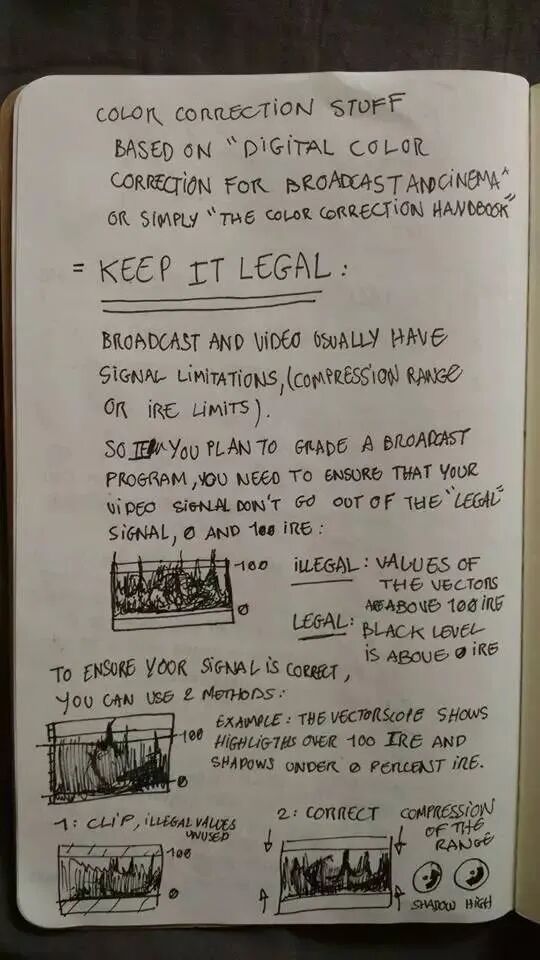 COLOR CORRECTION STUFF
BASED ON "DIGITAL COLOR
CORRECTION FOR BROADCAST AND CINEMA"
OR SIMPLY "THE COLOR CORRECTION HANDBOOK"
= KEEP IT LEGAL:
BROADCAST AND VIDEO USUALLY HAVE
SIGNAL LIMITATIONS, (COMPRESSION RANGE
OR IRE LIMITS).
SO IF YOU PLAN TO GRADE A BROADCAST
PROGRAM, YOU NEED TO ENSURE THAT YOUR
VIDEO SIGNAL DON'T GO OUT OF THE "LEGAL"
SIGNAL, 0 AND 100 IRE:
100
0
ILLEGAL: VALUES OF
THE VECTORS
ARE ABOVE 100 IRE
LEGAL: BLACK LEVEL
IS ABOVE 0 IRE
TO ENSURE YOUR SIGNAL IS CORRECT,
YOU CAN USE 2 METHODS:
100
0
EXAMPLE: THE VECTORSCOPE SHOWS
HIGHLIGTHS OVER 100 IRE AND
SHADOWS UNDER 0 PERCENT IRE.
1: CLIP, ILLEGAL VALUES
UNUSED
100
0
2: CORRECT COMPRESSION
OF THE
RANGE
SHADOW HIGH